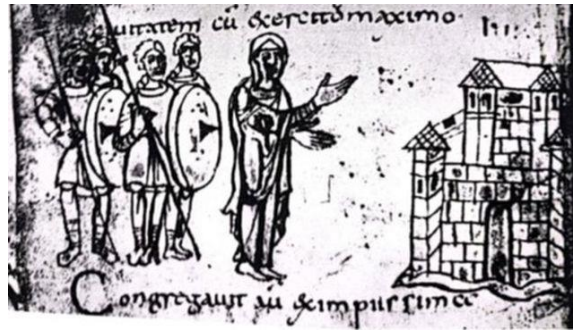 uitatem cū exercitu maximo.
Congregauit au eximpiissimae